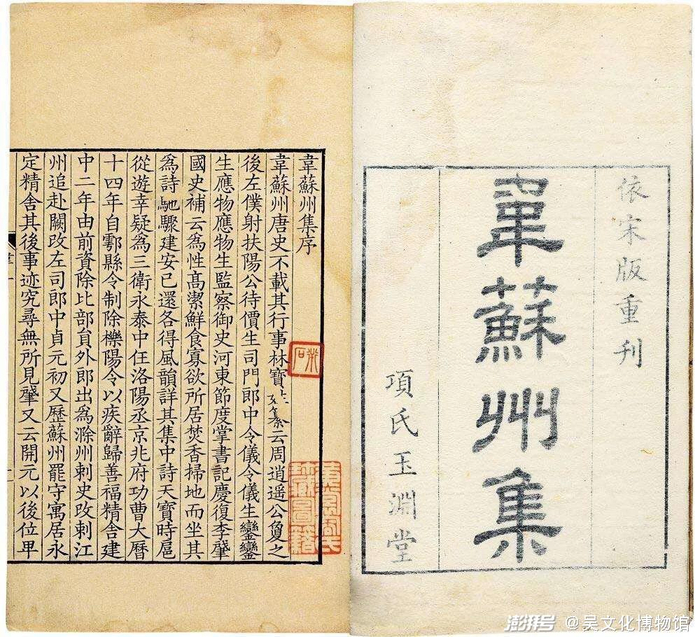 依宋版重刊
韋蘇州集
項氏玉淵堂
韋蘇州集序
韋蘇州唐史不載其行事林寶纂云周逍遥公敻之
後左僕射扶陽公待價生司門郎中令儀令儀生鑾鑾
生應物應物生監察御史河東節度掌書記慶復李肇
國史補云為性高潔鮮食寡欲所居焚香掃地而坐其
為詩馳驟建安已還各得風韻詳其集中詩天寶時扈
從遊幸疑為三衛永泰中任洛陽丞京兆府功曹大曆
十四年自鄠縣令制除櫟陽令以疾辭歸善福精舍建
中二年由前資除比部員外郎出為滁州刺史攺刺江
州追赴闕攺左司郎中貞元初又歷蘇州罷守寓居永
定精舍其後事迹究尋無所見肇又云開元以後位卑
澎湃号@吴文化博物馆